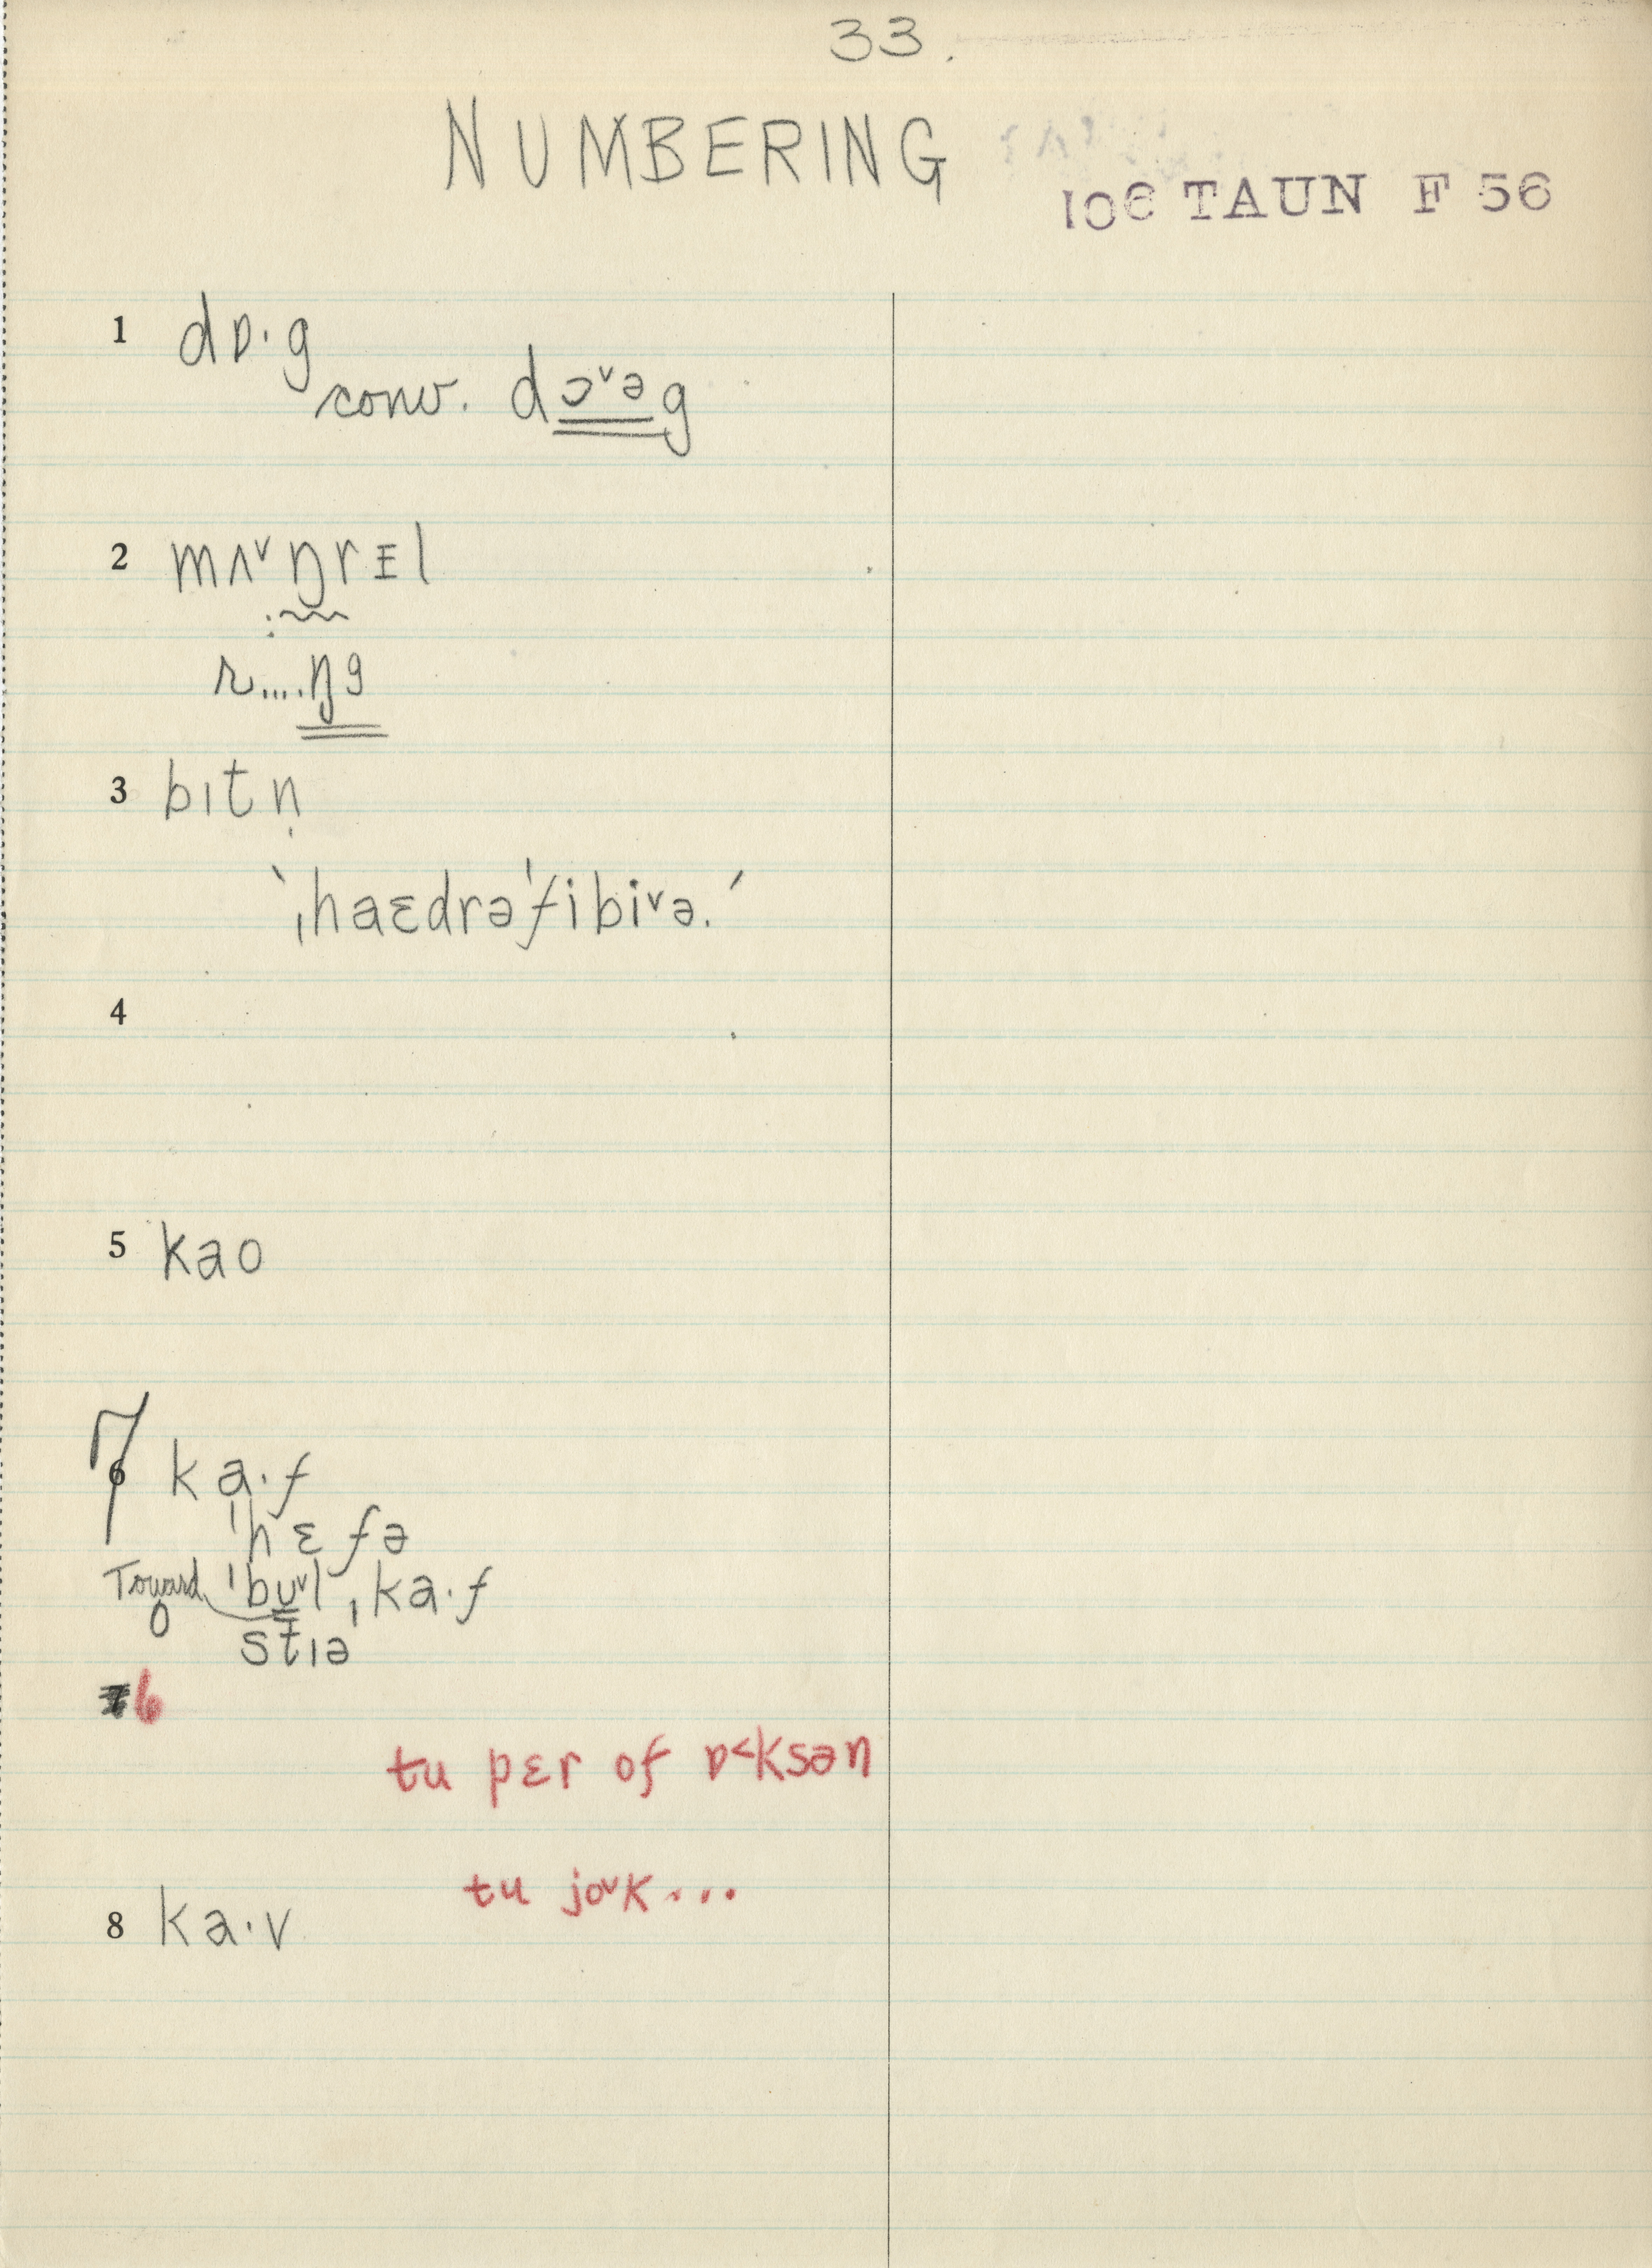 33.
NUMBERING
106 TAUN F 56
1 dɒ·g
conv. dɔˇəg
2 mʌˇŋrɪl
r....ŋg
3 bɪtn̩
ˋˌhaɛdrəˈfibiˇə.ˊ
4
5 kao
7 6 ka·f
ˈhɛfə
Toward ˈbʊˇl ˌka·f
o
stɪə
7 6
tu pɛr of ɒ˂ksən
tu joˇk...
8 ka·v